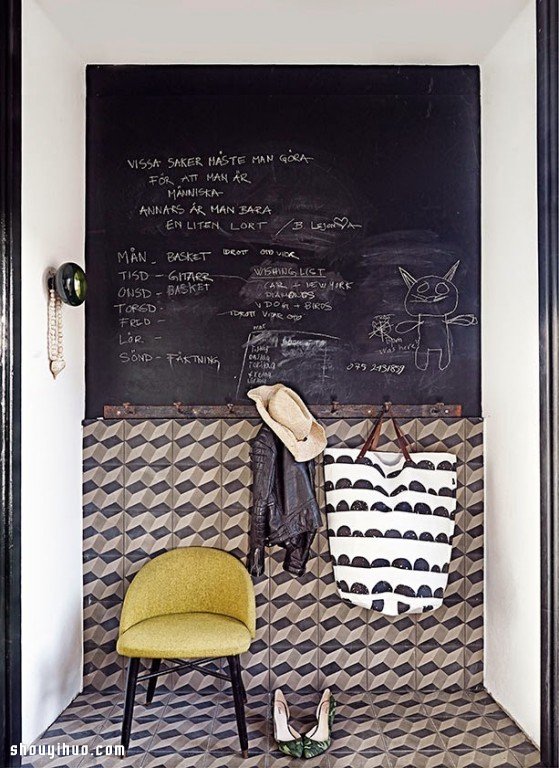 VISSA SAKER MÅSTE MAN GÖRA
FÖR ATT MAN ÄR
MÄNNISKA
ANNARS ÄR MAN BARA
EN LITEN LORT / B. LEJON♡A
MÅN - BASKET IDROTT
TISD - GITARR
ONSD - BASKET
TORSD -
FRED -
LÖR -
SÖND - FÄKTNING
WISHING LIST
CAR + NEW YORK
DIAMONDS
DOG + BIRDS
IDROTT
mat
was here!
shouyihuo.com